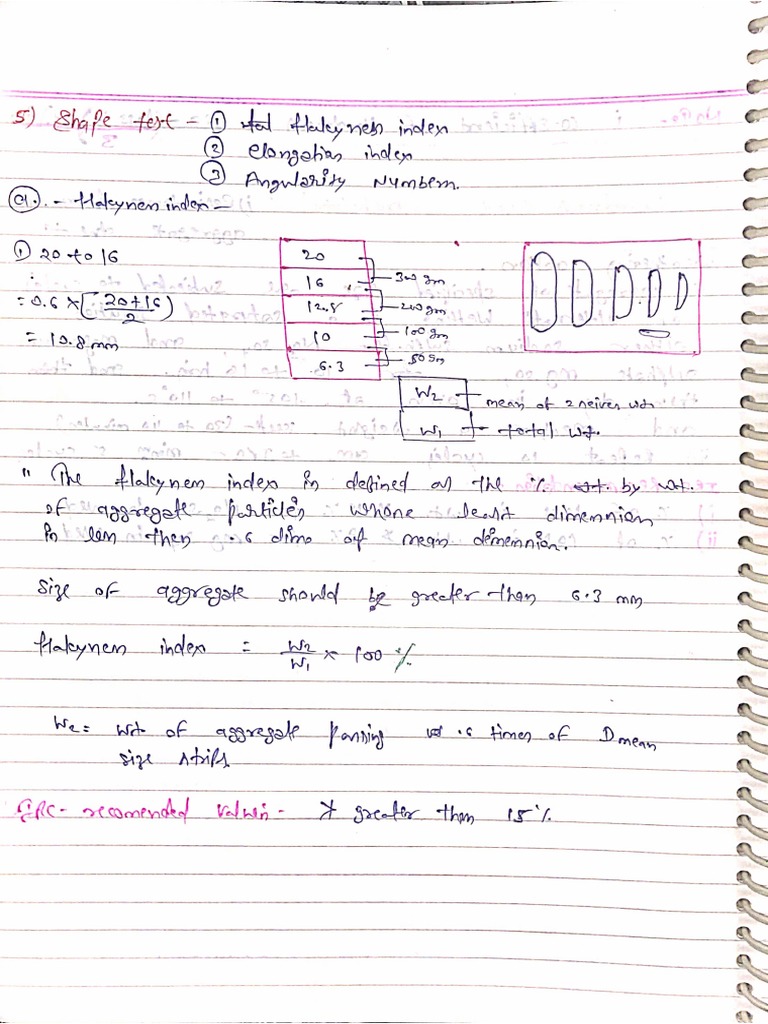 5) Shape test - ① flakyness index
② Elongation index
③ Angularity Numbers.
(a). - flakyness index -
① 20 to 16
= 0.6 × (20+16)/2
= 10.8 mm
20
16
12.5
10
6.3
300 gm
200 gm
100 gm
50 gm
W2 - mean of 2 seives wt.
W1 - total wt.
" The flakyness index is defined as the % wt. by wt.
of aggregate particles whose least dimension
is less then .6 dims of mean dimension.
Size of aggregate should be greater than 6.3 mm
flakyness index = W2/W1 × 100 %
W2 = wt of aggregate passing .6 times of Dmean
size strips
IRC - recomended values - ≯ greater than 15%